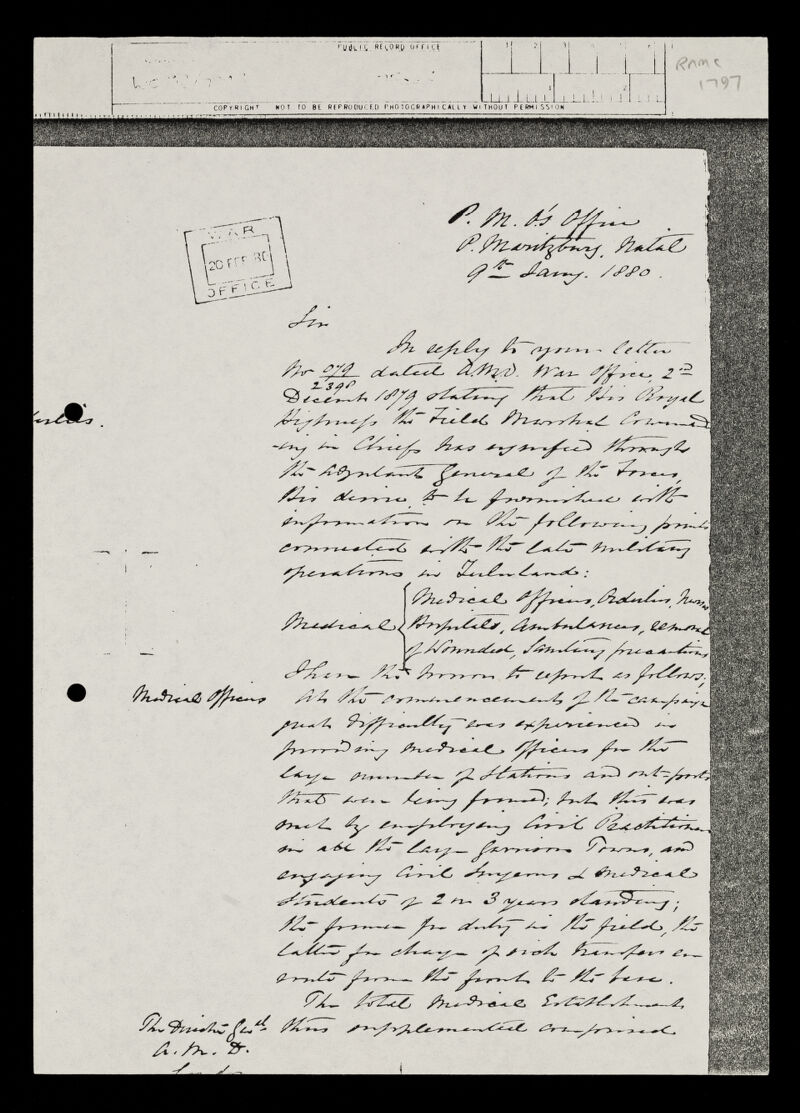 PUBLIC RECORD OFFICE
COPYRIGHT NOT TO BE REPRODUCED PHOTOGRAPHICALLY WITHOUT PERMISSION
RAMC
1797
WAR
20 FEB 80
OFFICE
P. M. O's Office
P. Maritzburg, Natal
9th Jany. 1880.
Sir
In reply to your letter
No 079/2398 dated A.M.D. War Office, 2nd
December 1879 stating that His Royal
Highness the Field Marshal Command
-ing in Chief has signified through
the Adjutant General of the Forces,
His desire to be furnished with
information on the following points
connected with the late military
operations in Zululand:
Medical { Medical Officers, Orderlies, Nurses
Hospitals, Ambulances, removal
of Wounded, Sanitary precautions
I have the honor to report as follows;
Medical Officers
At the commencement of the campaign
great difficulty was experienced in
providing medical officers for the
large number of Stations and out-posts
that were being formed; but this was
met by employing Civil Practitioners
in all the large Garrison Towns, and
engaging Civil Surgeons & Medical
Students of 2 or 3 years standing;
the former for duty in the field, the
latter for charge of sick transfers en
route from the front to the base.
The total Medical Establishment
thus supplemented comprised
The Director Genl
A. M. D.